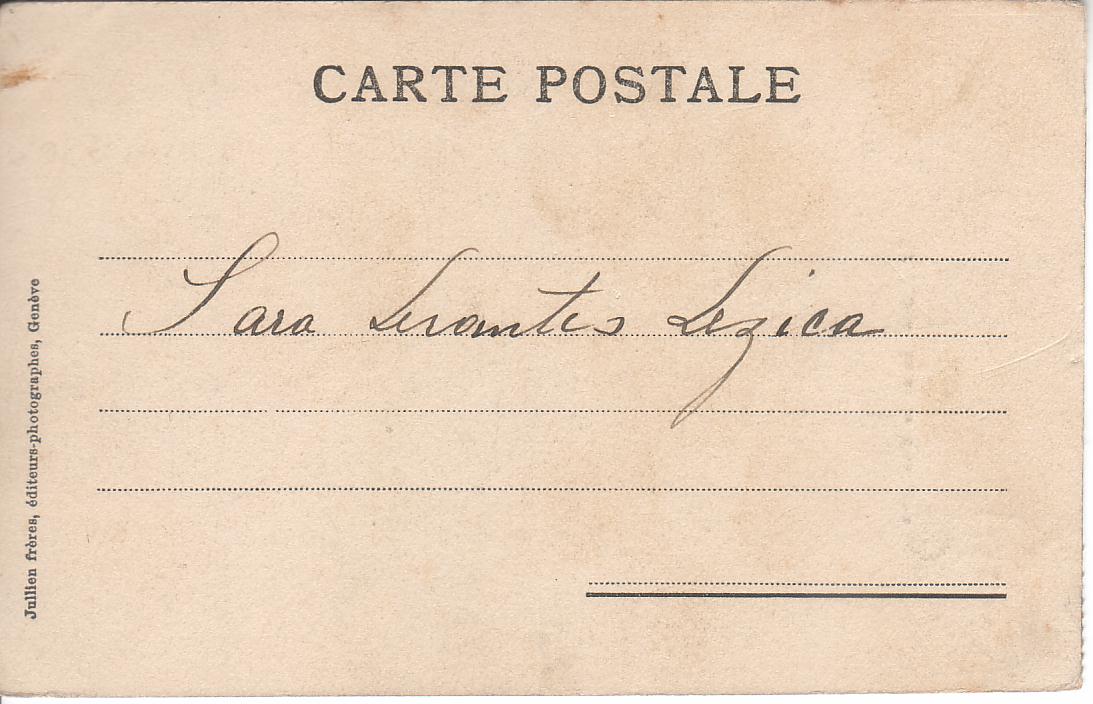 CARTE POSTALE
Sara Serantes Lezica
Jullien frères, éditeurs-photographes, Genève